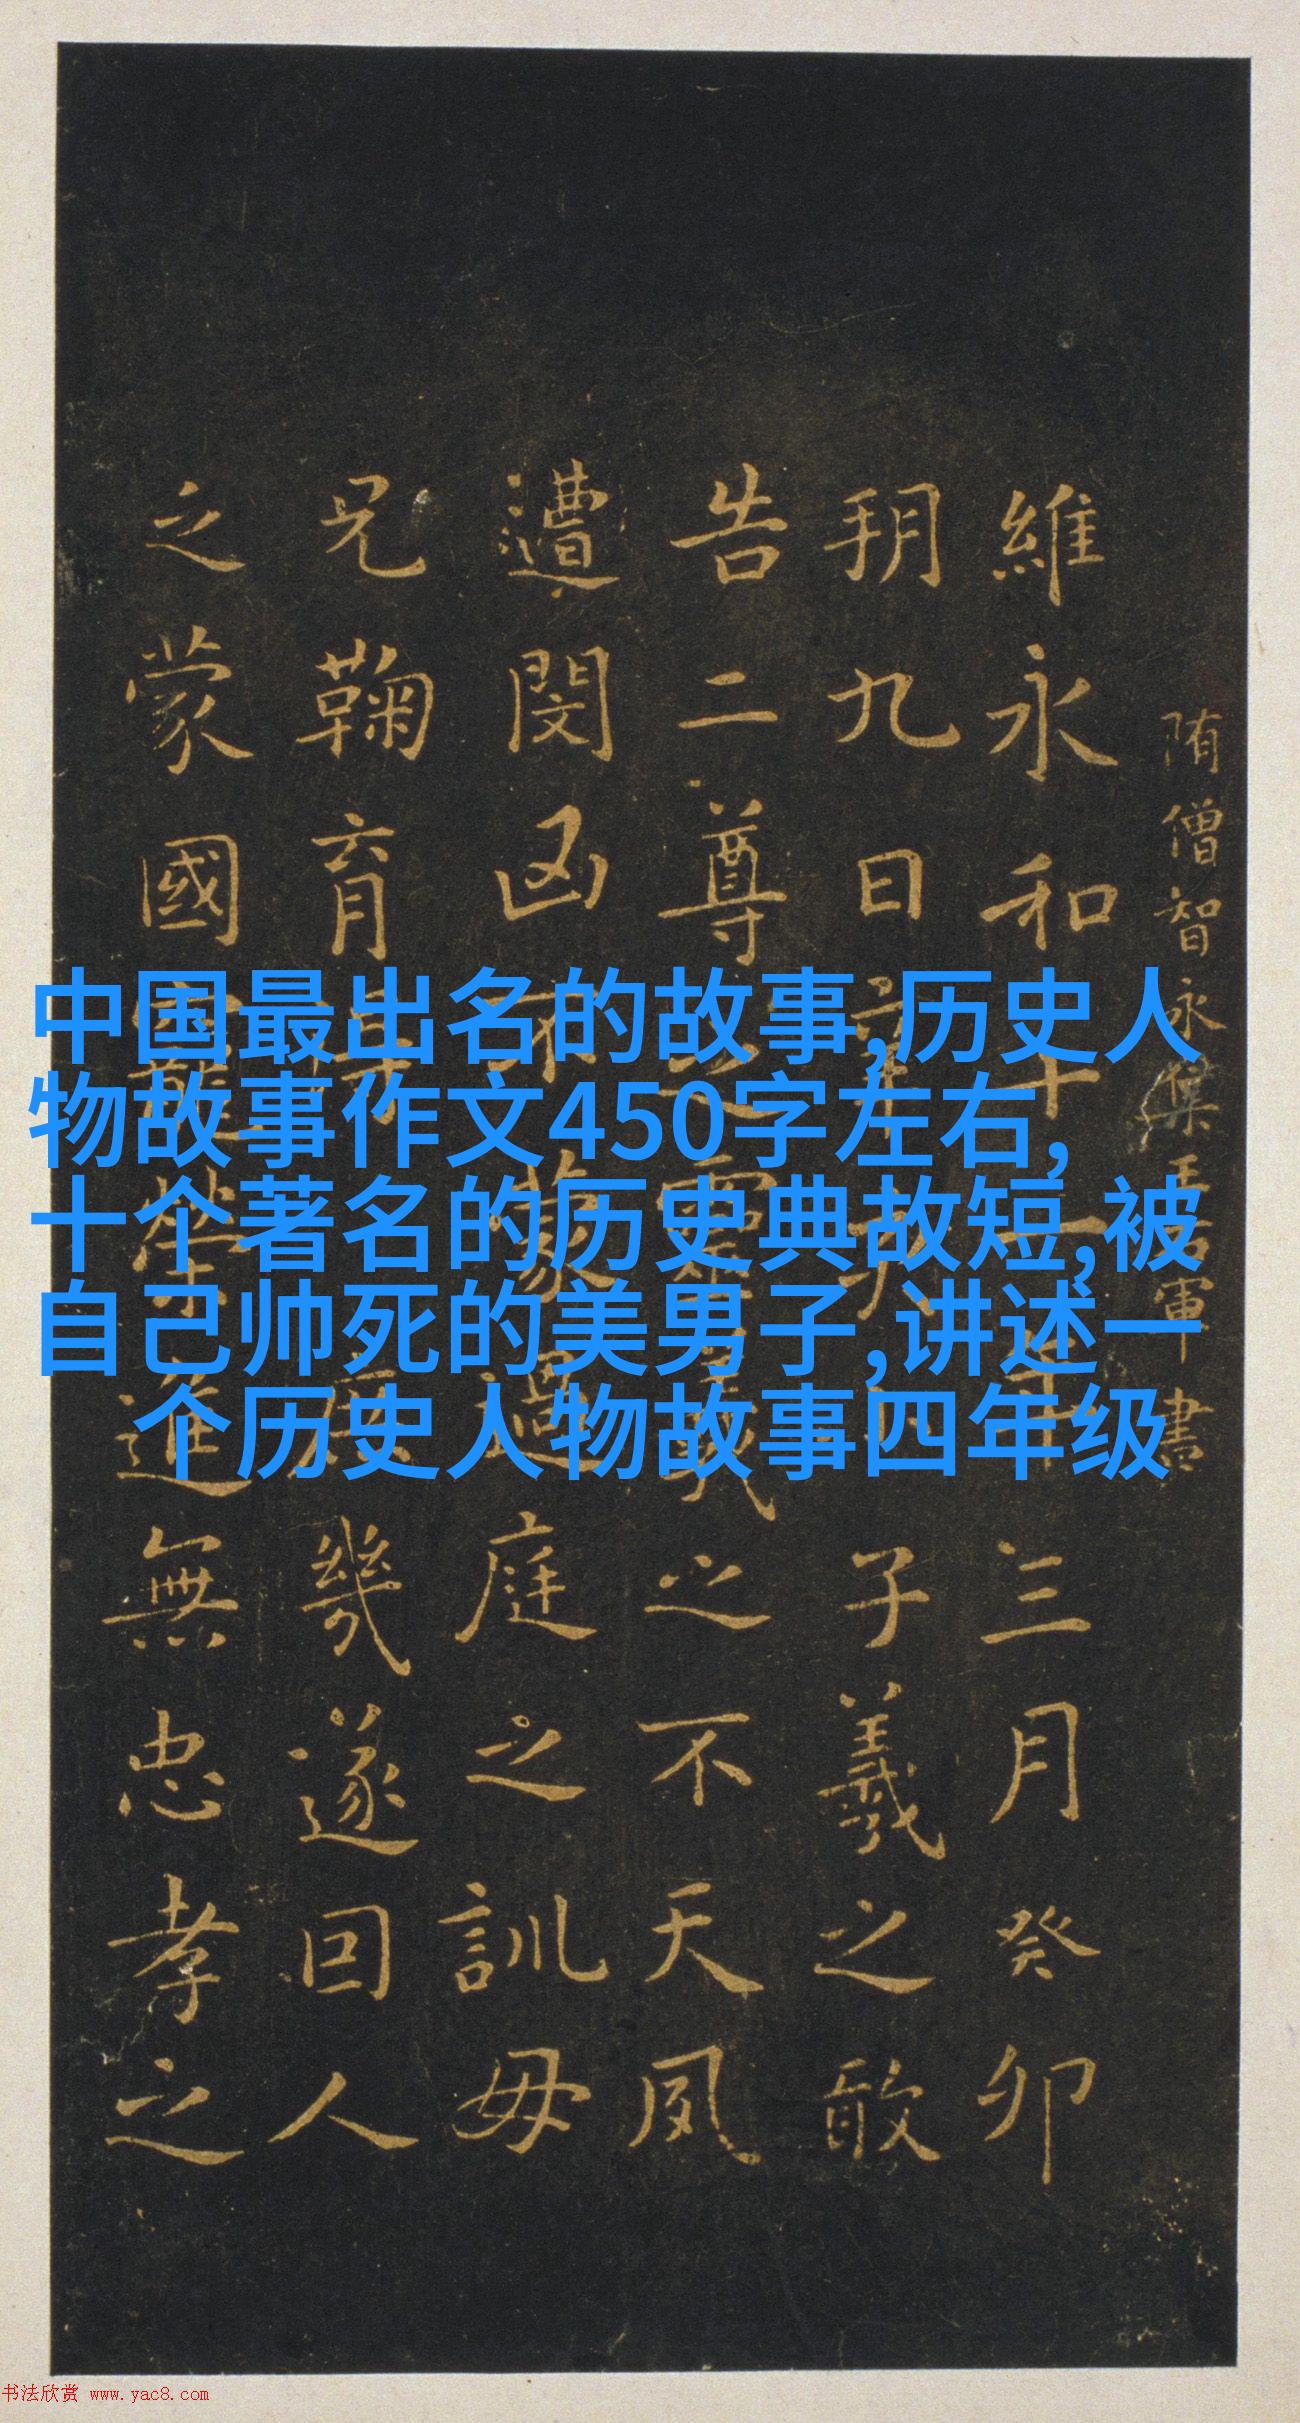 隋僧智永集王右軍書
維永和十一年三月癸卯
朔九日辛亥子羲之敢
告二尊之靈羲之不天夙
遭閔凶不蒙過庭之訓毋
兄鞠育得庶幾遂因人
之蒙國寵榮進無忠孝之
中国最出名的故事,历史人
物故事作文450字左右,
十个著名的历史典故短,被
自己帅死的美男子,讲述一
个历史人物故事四年级
书法欣赏 www.yac8.com